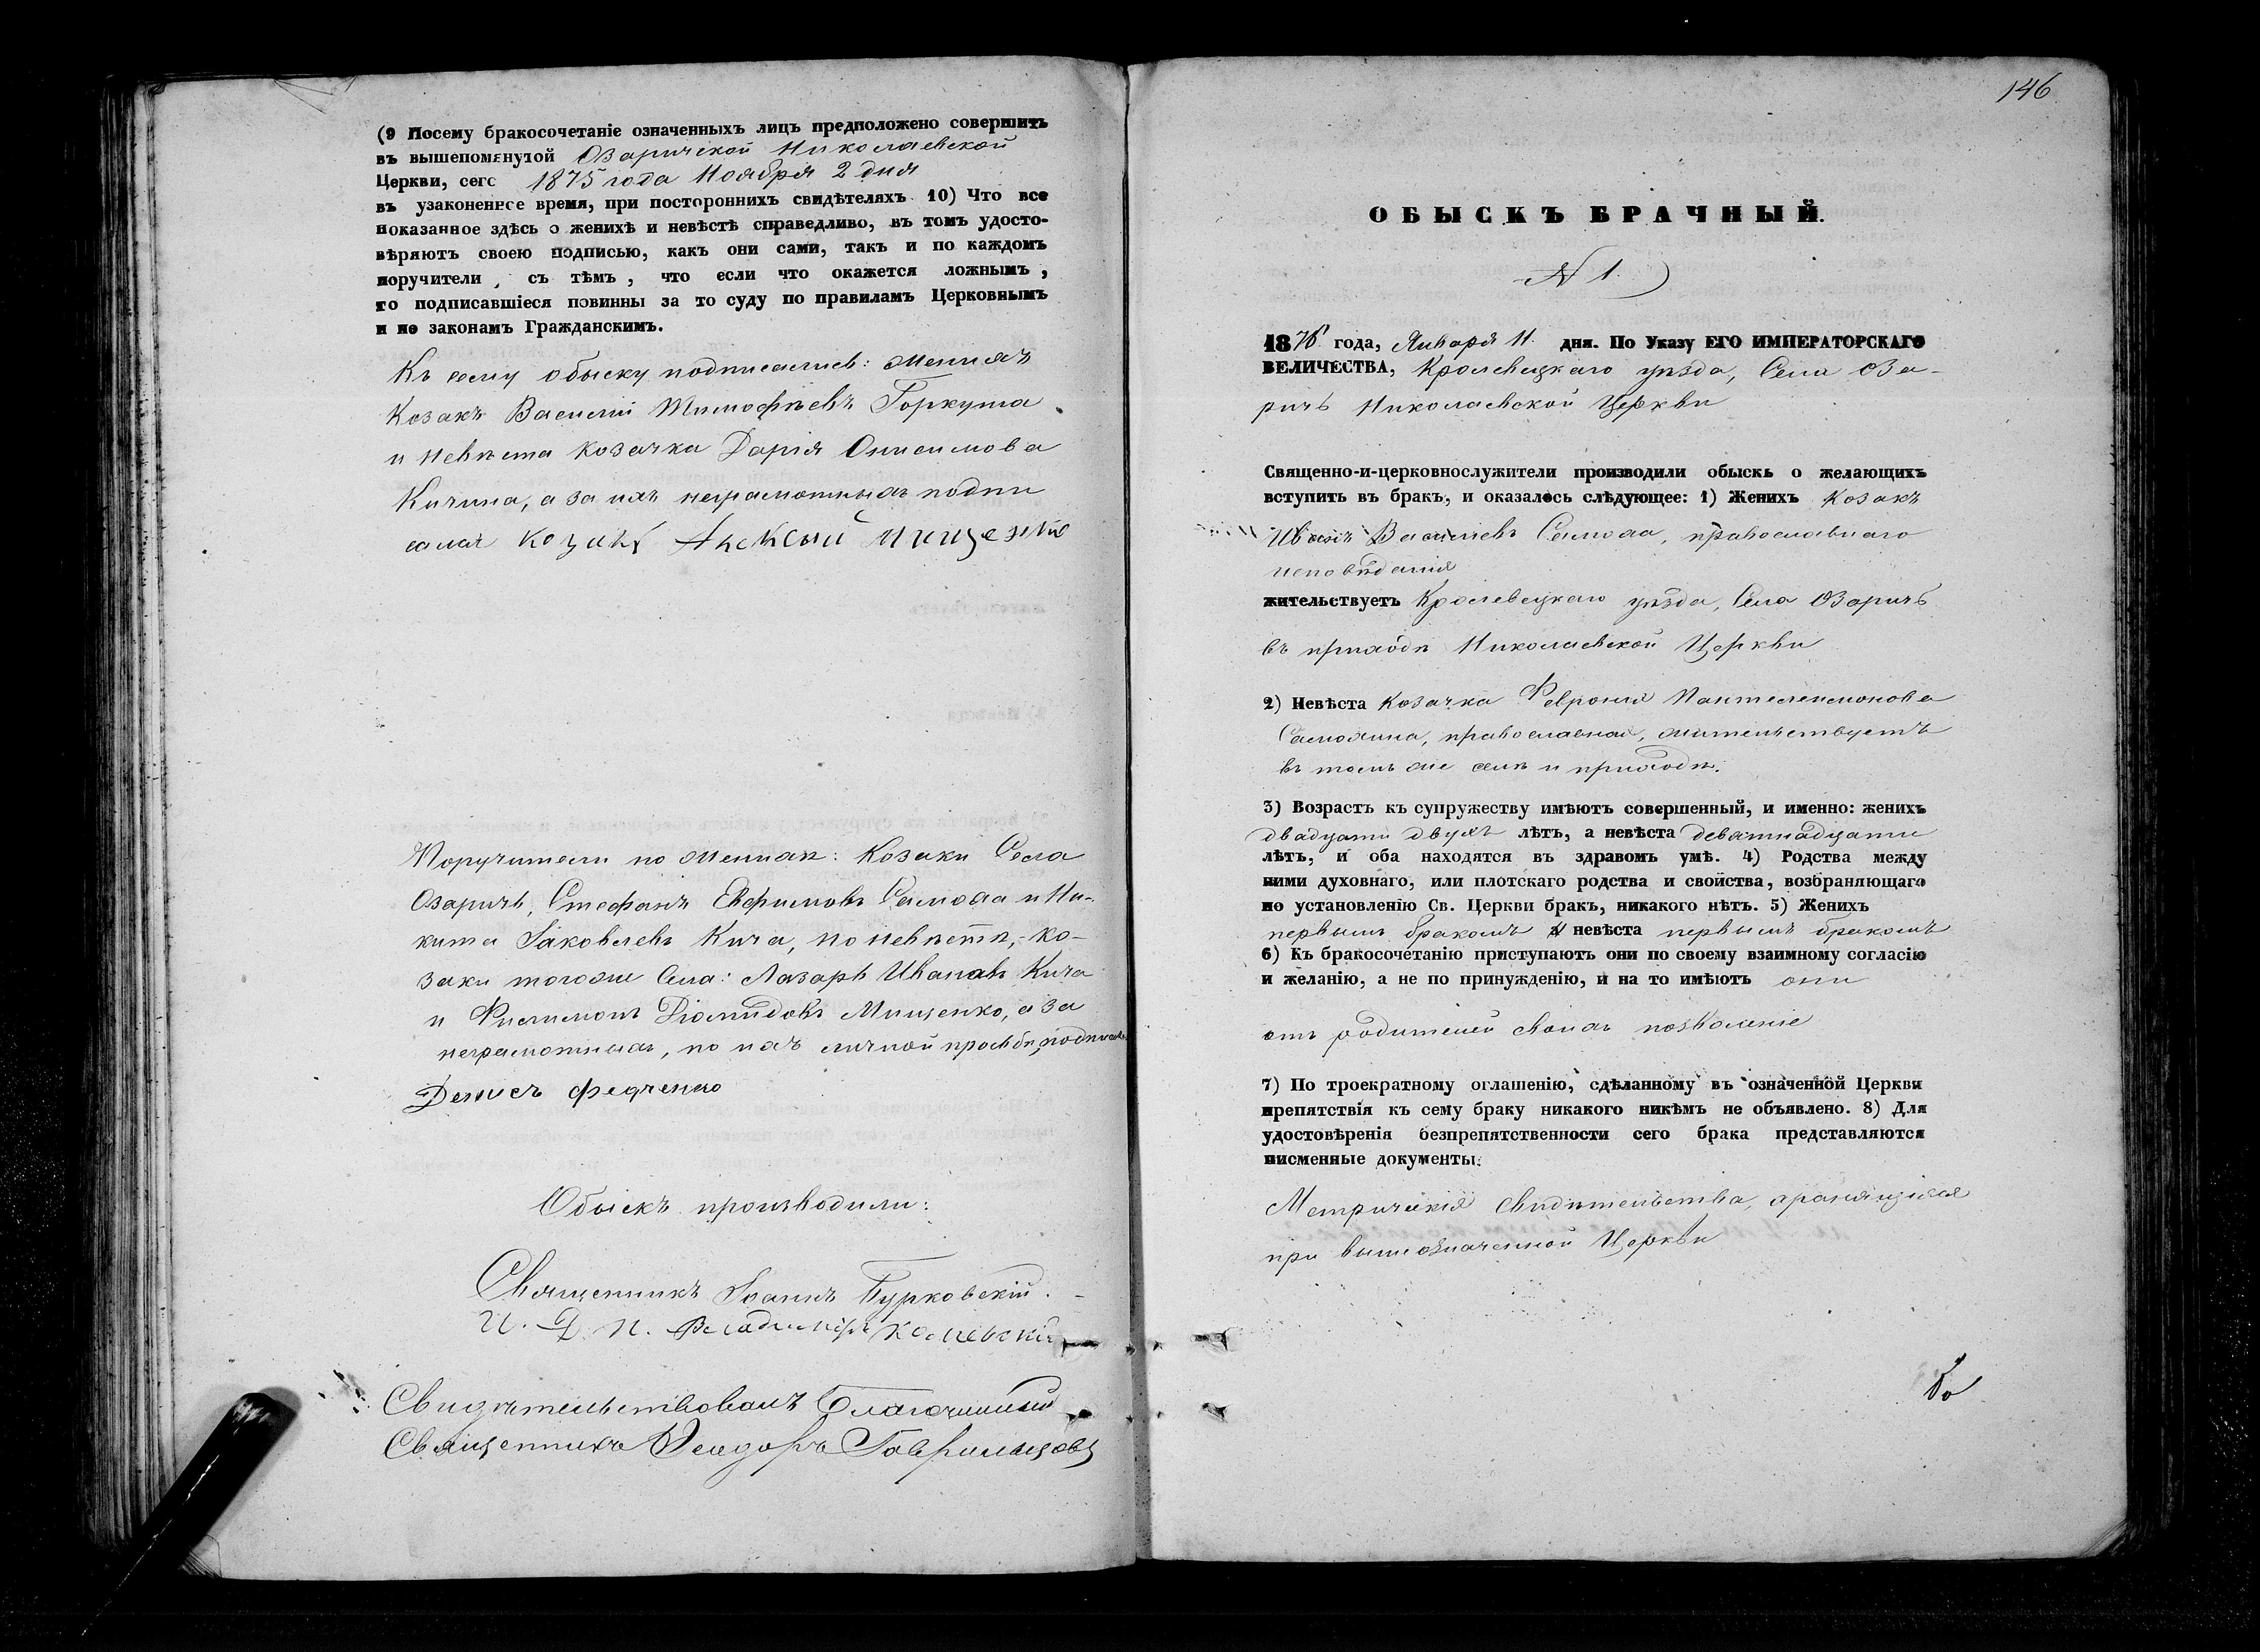 (9 Посему бракосочетаніе означенныхъ лицъ предположено совершить
въ вышепомянутой Озаричской Николаевской
Церкви, сего 1875 года Ноября 2 дня
въ узаконенное время, при постороннихъ свидѣтеляхъ 10) Что все
показанное здѣсь о женихѣ и невѣстѣ справедливо, въ томъ удосто-
вѣряютъ своею подписью, какъ они сами, такъ и по каждомъ
поручители, съ тѣмъ, что если что окажется ложнымъ,
то подписавшіеся повинны за то суду по правиламъ Церковнымъ
и по законамъ Гражданскимъ.
Къ сему обыску подписались: женихъ
Козакъ Василій Тимофѣевъ Горкуша
и невѣста козачка Дарія Онисимова
Кичина, а за ихъ неграмотныхъ подпи
салъ козакъ Алексѣй Мищенко
Поручители по женихѣ: Козаки Села
Озаричъ, Стефанъ Евфимовъ Самоха и Ни-
кита Іаковлевъ Кича, по невѣстѣ, ко-
заки тогоже Села: Лазарь Ивановъ Кича
и Филимонъ Діомидовъ Мищенко, а за
неграмотныхъ, по ихъ личной просьбѣ, подписалъ
Денисъ Федченко
Обыскъ производили:
Священникъ Іоаннъ Бурковскій.
И. Д. П. Владимиръ
Свидѣтельствовалъ Благочинный
Священникъ Ѳеодоръ
146
ОБЫСКЪ БРАЧНЫЙ.
N 1.
1876 года, Января 11. дня. По Указу ЕГО ИМПЕРАТОРСКАГО
ВЕЛИЧЕСТВА, Кролевецкаго уѣзда, Села Оза-
ричъ Николаевской Церкви
Священно-и-церковнослужители производили обыскъ о желающихъ
вступить въ бракъ, и оказалось слѣдующее: 1) Женихъ Козакъ
Иванъ Васильевъ Самоха, православнаго
исповѣданія
жительствуетъ Кролевецкаго уѣзда, Села Озаричъ
въ приходѣ Николаевской Церкви
2) Невѣста козачка Феврония Пантелеимонова
Самохина, православная, жительствуетъ
въ томъ же селѣ и приходѣ.
3) Возрастъ къ супружеству имѣютъ совершенный, и именно: женихъ
двадцати двухъ лѣтъ, а невѣста девятнадцати
лѣтъ, и оба находятся въ здравомъ умѣ. 4) Родства между
ними духовнаго, или плотскаго родства и свойства, возбраняющаго
по установленію Св. Церкви бракъ, никакого нѣтъ. 5) Женихъ
первымъ бракомъ и невѣста первымъ бракомъ
6) Къ бракосочетанію приступаютъ они по своему взаимному согласію
и желанію, а не по принужденію, и на то имѣютъ они
отъ родителей своихъ позволеніе
7) По троекратному оглашенію, сдѣланному въ означенной Церкви
препятствія къ сему браку никакого никѣмъ не объявлено. 8) Для
удостовѣренія безпрепятственности сего брака представляются
писменные документы:
Метрическія свидѣтельства, хранящіяся
при вышеозначенной Церкви